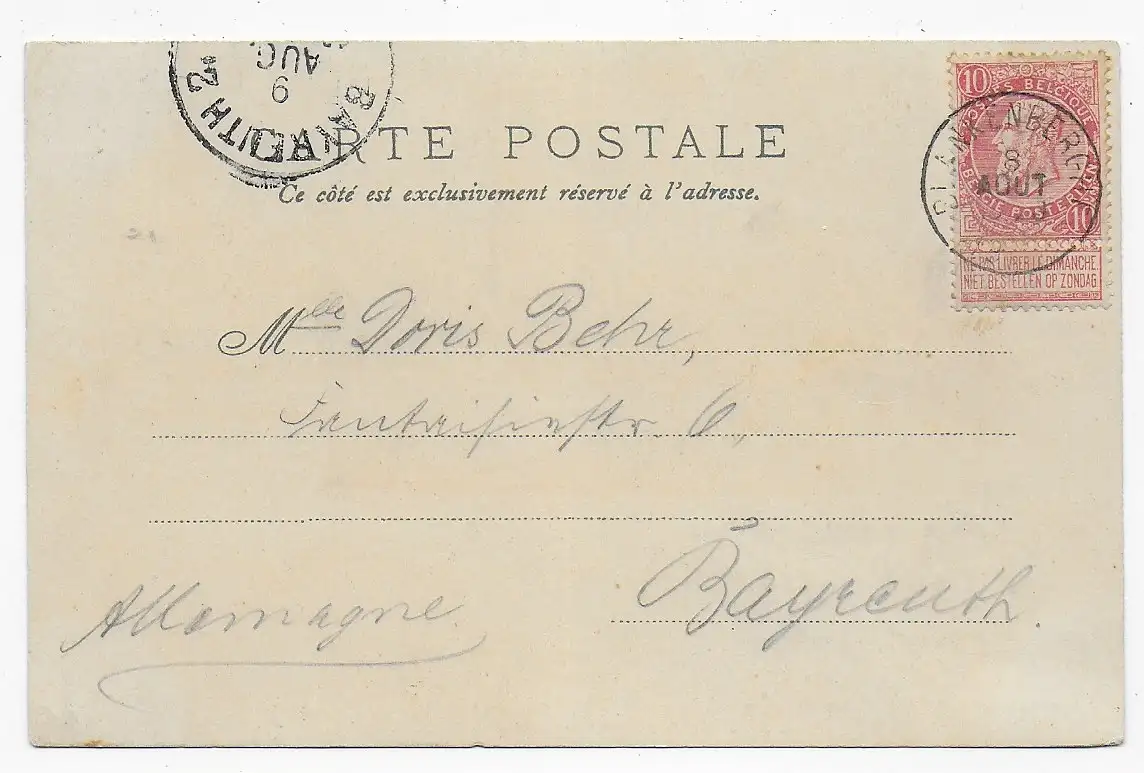 BAYREUTH 2
9
AUG
CARTE POSTALE
Ce côté est exclusivement réservé à l'adresse.
10
BELGIQUE
BELGIE POSTERIJEN
10
BLANKENBERGHE
8
AOUT
NE PAS LIVRER LE DIMANCHE.
NIET BESTELLEN OP ZONDAG
Mlle Doris Behr,
Fantaisiestr. 6,
Bayreuth.
Allemagne.